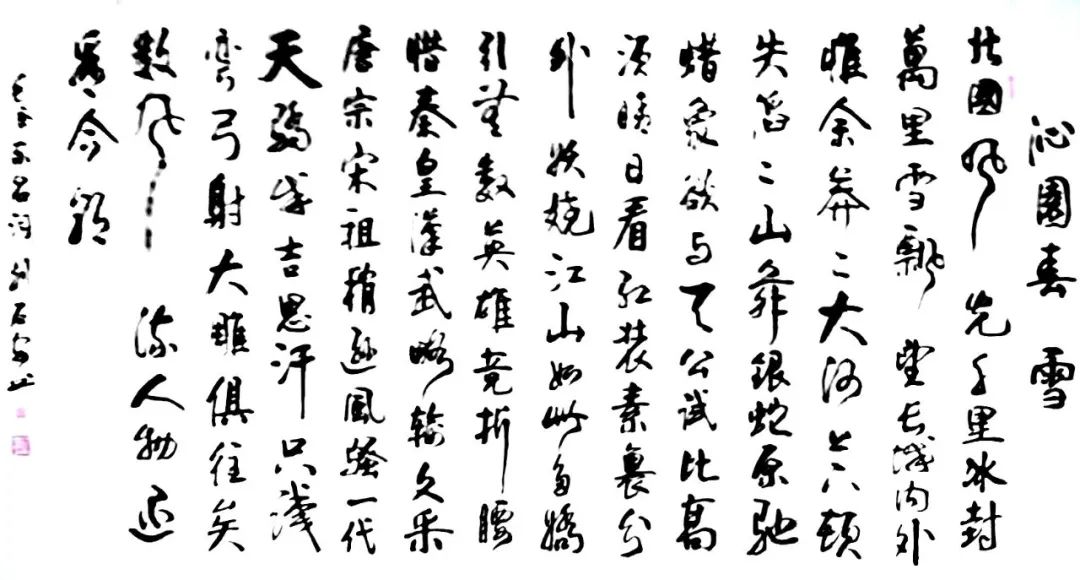 沁園春 雪
北國風光千里冰封
萬里雪飄 望長城内外
惟余莽々大河上下頓
失滔々山舞銀蛇原馳
蜡象欲与天公試比高
須晴日看紅裝素裹分
外妖嬈江山如此多嬌
引無數英雄竞折腰
惜秦皇漢武略輸文采
唐宗宋祖稍遜風騷一代
天驕成吉思汗只識
彎弓射大雕俱往矣
數風流人物還
看今朝